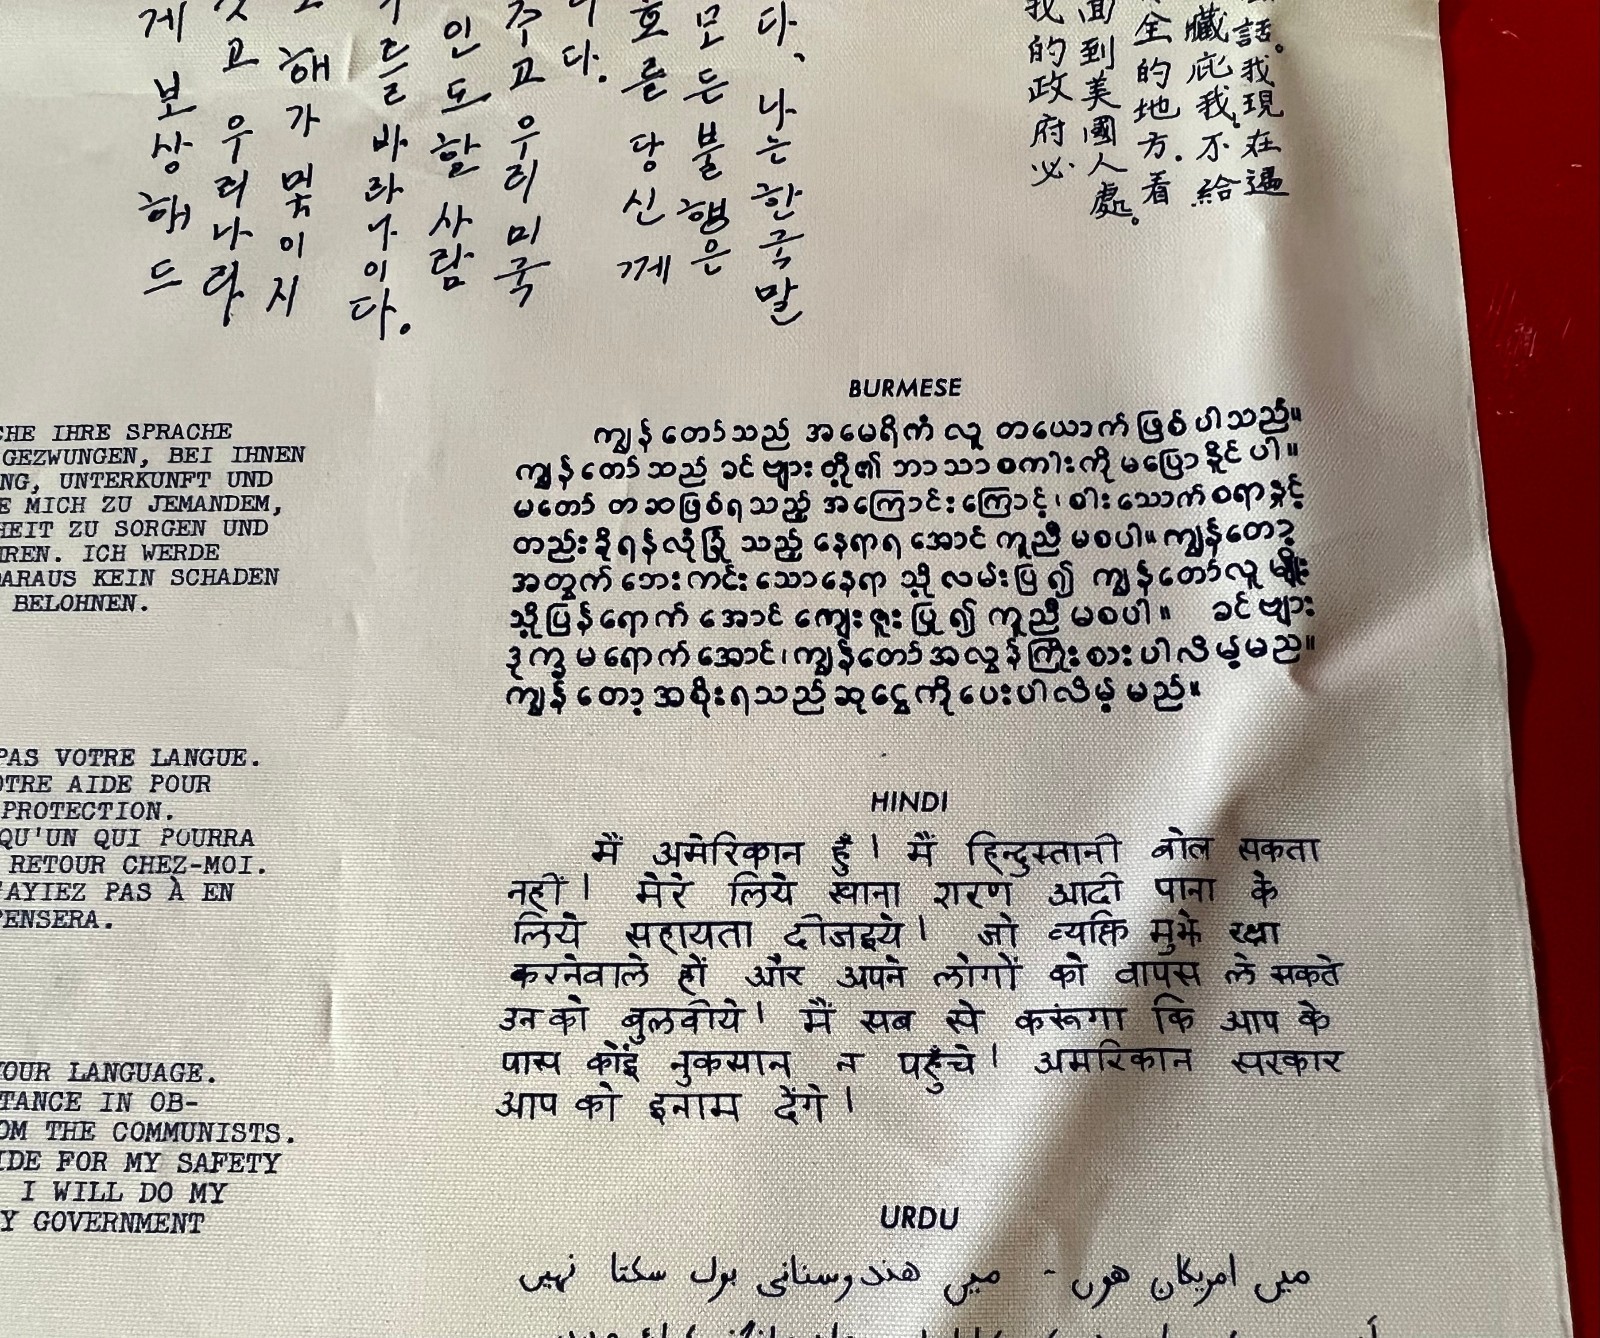 게 보상해드
고 우리나라
해가 몇이지
를 바라나이다.
인도할 사람
주고 우리 미국
다.
호를 당신께
모든 불행은
다、나는 한국말
我的政府必
面到美國人處。
全的地方.看
藏庇我,不給
話。我現在逼
CHE IHRE SPRACHE
GEZWUNGEN, BEI IHNEN
NG, UNTERKUNFT UND
E MICH ZU JEMANDEM,
HEIT ZU SORGEN UND
HREN. ICH WERDE
DARAUS KEIN SCHADEN
BELOHNEN.
PAS VOTRE LANGUE.
OTRE AIDE POUR
PROTECTION.
QU'UN QUI POURRA
RETOUR CHEZ-MOI.
'AYIEZ PAS À EN
PENSERA.
OUR LANGUAGE.
TANCE IN OB-
OM THE COMMUNISTS.
IDE FOR MY SAFETY
I WILL DO MY
Y GOVERNMENT
BURMESE
ကျွန်တော်သည် အမေရိကံ လူ တယောက် ဖြစ်ပါသည်။
ကျွန်တော်သည် ခင်ဗျားတို့၏ ဘာသာစကါးကို မပြောနိုင်ပါ။
မတော်တဆဖြစ်ရသည့် အကြောင်းကြောင့်၊ စါးသောက်စရာနှင့်
တည်းခိုရန်လုံခြုံသည့် နေရာရအောင် ကူညီမစပါ။ ကျွန်တော့
အတွက် ဘေးကင်းသောနေရာသို့ လမ်းပြ၍ ကျွန်တော်လူမျိုး
သို့ပြန်ရောက်အောင် ကျေးဇူးပြု၍ ကူညီမစပါ။ ခင်ဗျား
ဒုက္ခမရောက်အောင်၊ ကျွန်တော်အလွန်ကြိုးစားပါလိမ့်မည်။
ကျွန်တော့အစိုးရသည် ဆုငွေကိုပေးပါလိမ့်မည်။
HINDI
मैं अमेरिकान हुँ। मैं हिन्दुस्तानी बोल सकता
नहीं। मेरे लिये खाना शरण आदी पाना के
लिये सहायता दीजइये। जो व्यक्ति मुझे रक्षा
करनेवाले हों और अपने लोगों को वापस ले सकते
उनको बुलवीये। मैं सब से करूंगा कि आप के
पास कोंइ नुकसान न पहुँचे। अमरिकान सरकार
आप को इनाम देंगे।
URDU
میں امریکان هوں - میں هندوستانی بول سکتا نہیں